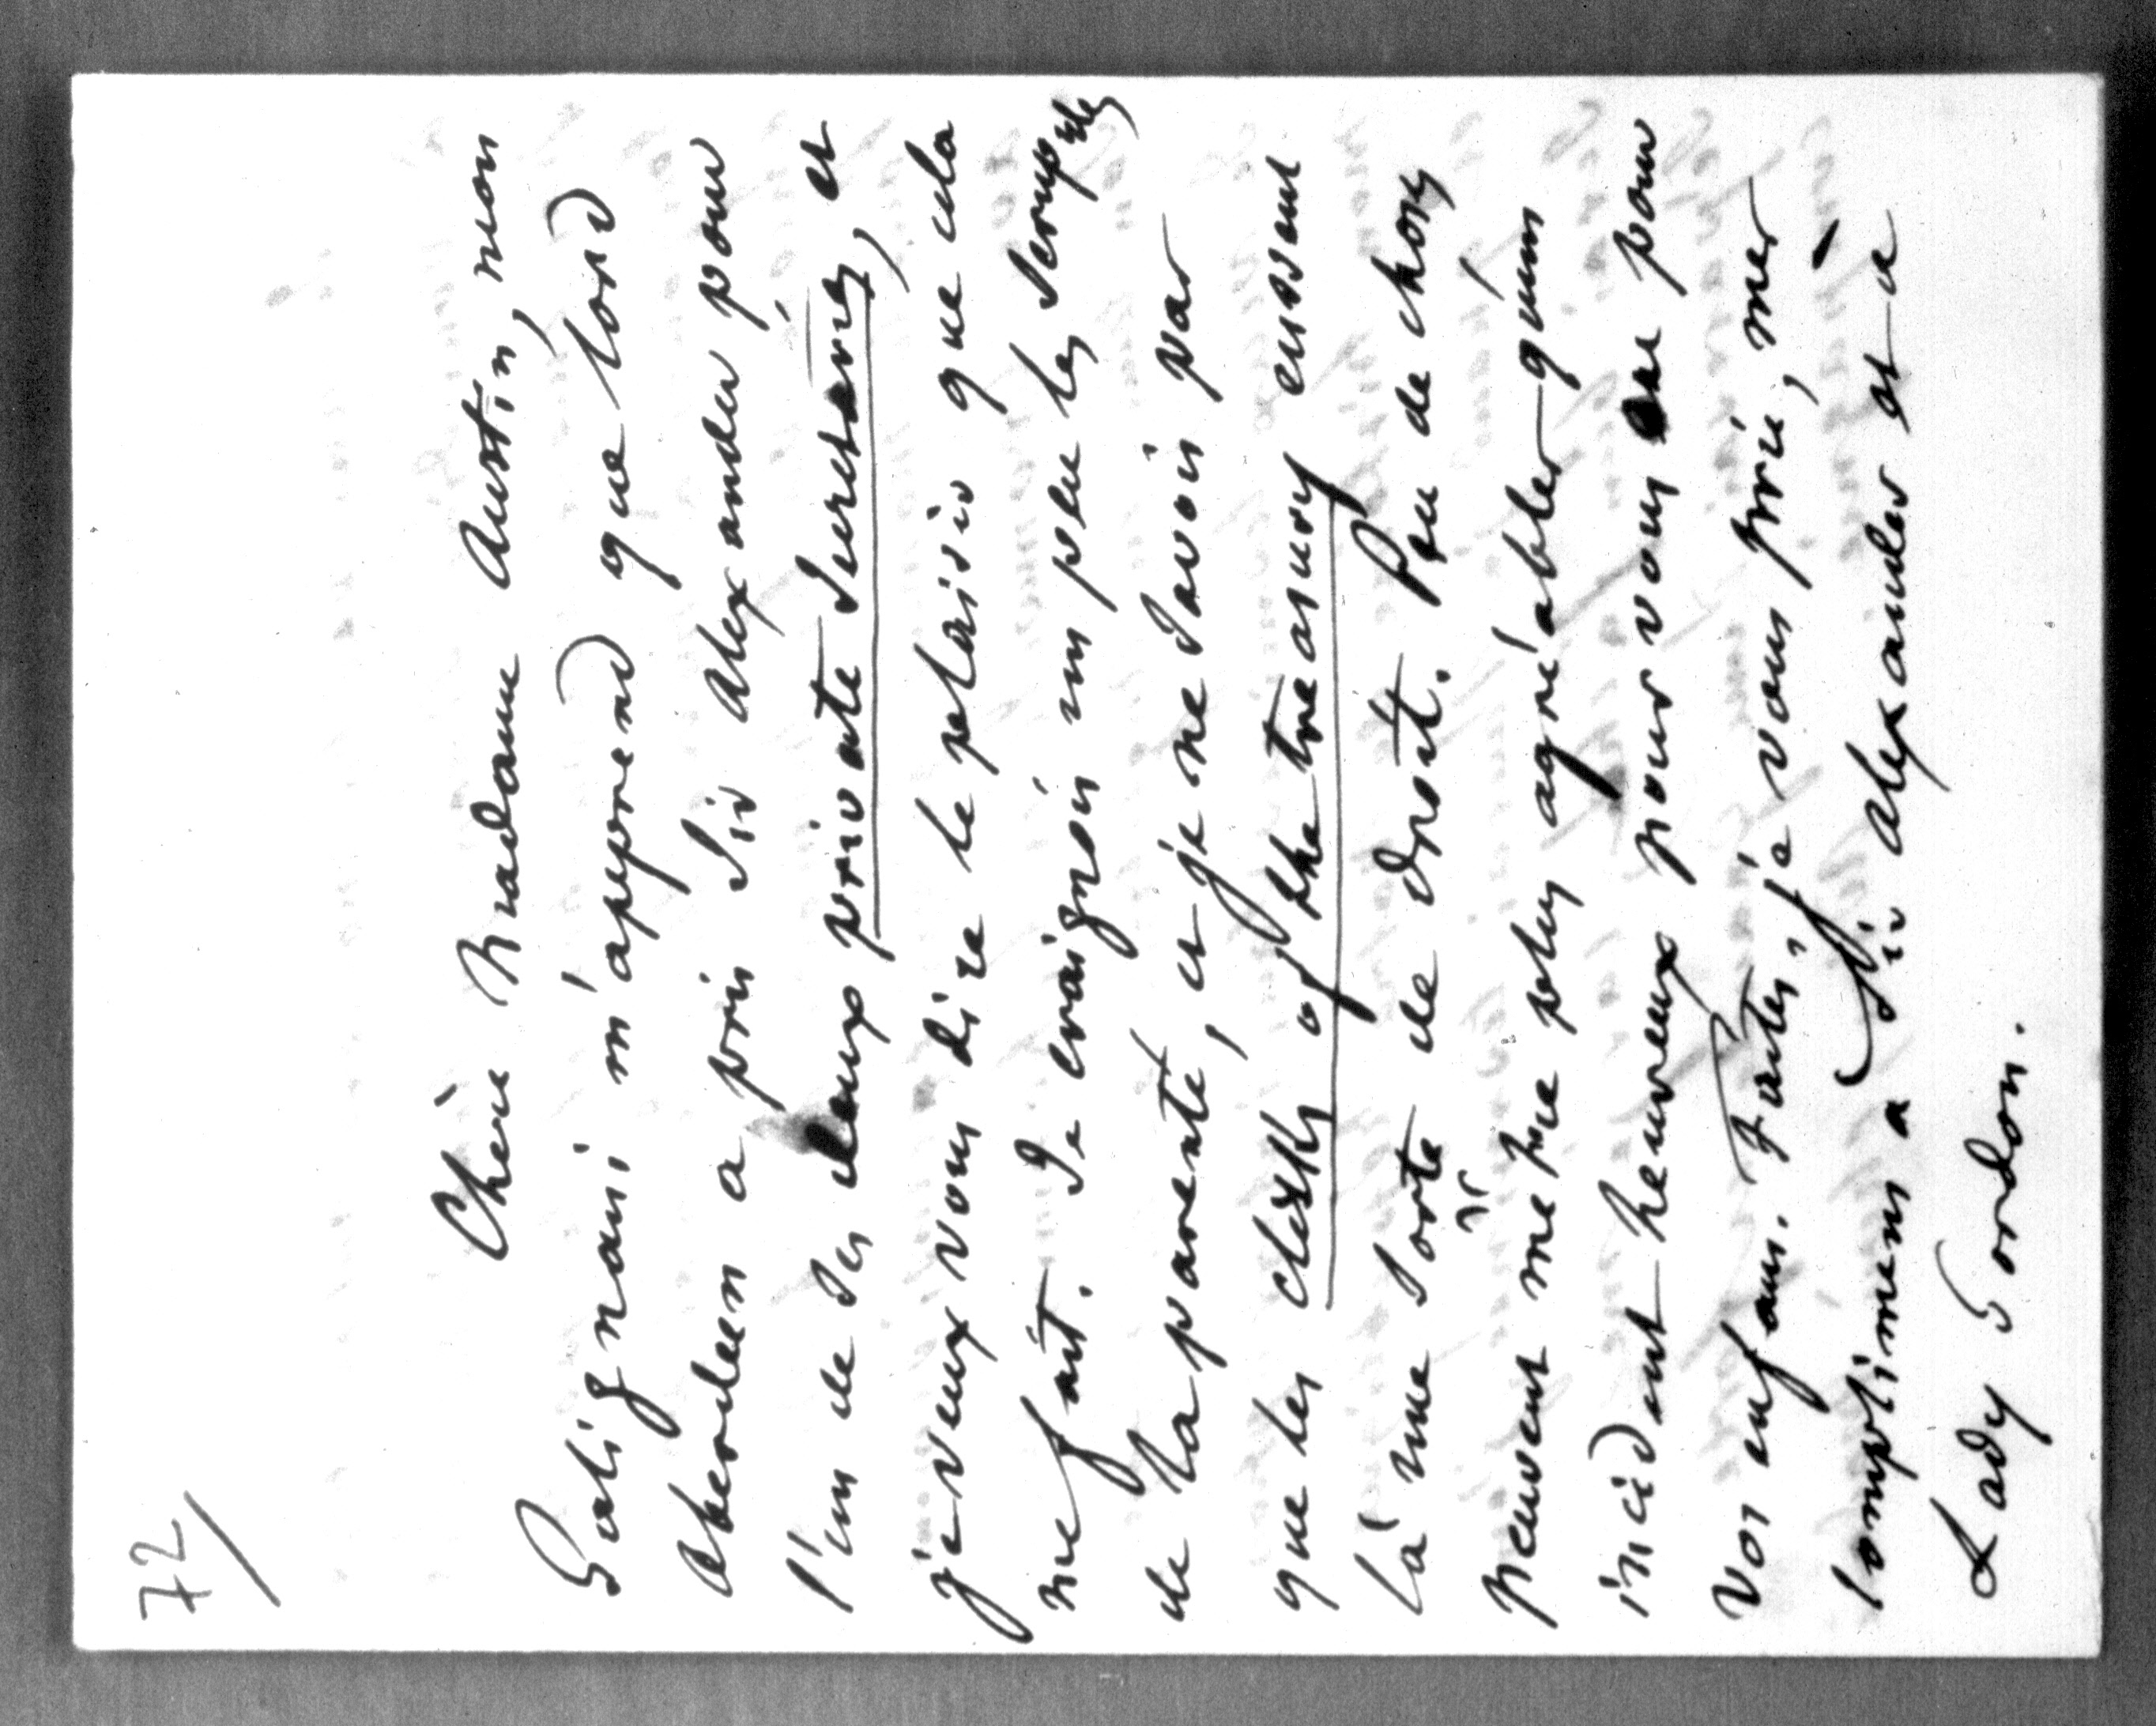 72
Chère Madame Austin, mon
Galignani m'apprend que lord
Aberdeen a pris Sir Alexander pour
l'un de ses deux private Secretaries, et
je veux vous dire le plaisir que cela
me fait. Je craignois un peu les scrupules
de la parenté, et je ne savois pas
que les clerks of the treasury eussent
là une sorte de droit. Peu de choses
peuvent m'être plus agréables qu'un
incident heureux pour vous ou pour
vos enfans. Faites, je vous prie, mes
complimens à Sir Alexander et à
Lady Gordon.